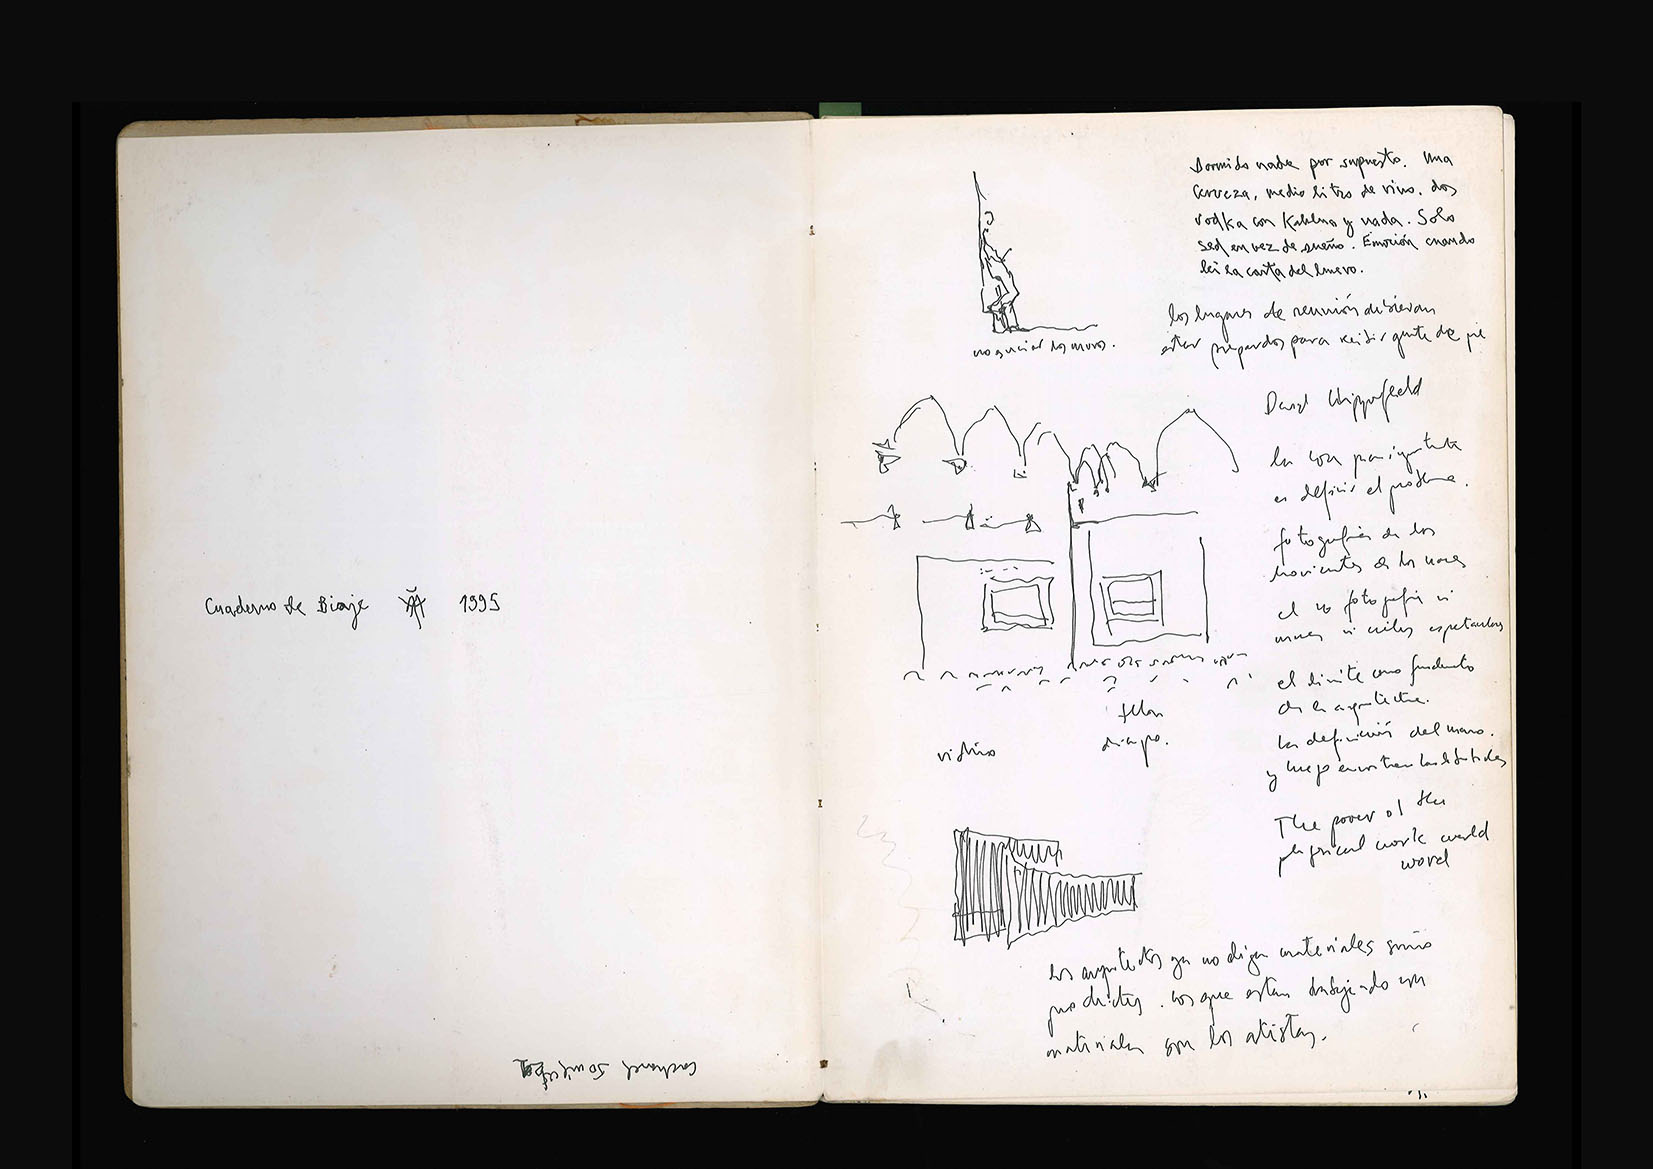 Cuaderno de Biaje 1995
Dormido nada por supuesto. Una
cerveza, medio litro de vino. dos
vodka con Kahlua y nada. Solo
sed en vez de sueño. Emoción cuando
leí la carta del
los lugares de reunión debieran
estar preparados para recibir gente de pie
no ensuciar los muros.
David Chipperfield
la cosa más importante
es definir el problema.
fotografías de los
movimientos de los
el no fotografía ni
ni espectaculares
el límite como fundamento
de la arquitectura.
la definición del muro.
y luego
The power of the
physical work world
word
telon
diapo.
vidrio
los arquitectos ya no digan materiales sino
productos. los que estan trabajando con
materiales son los artistas.